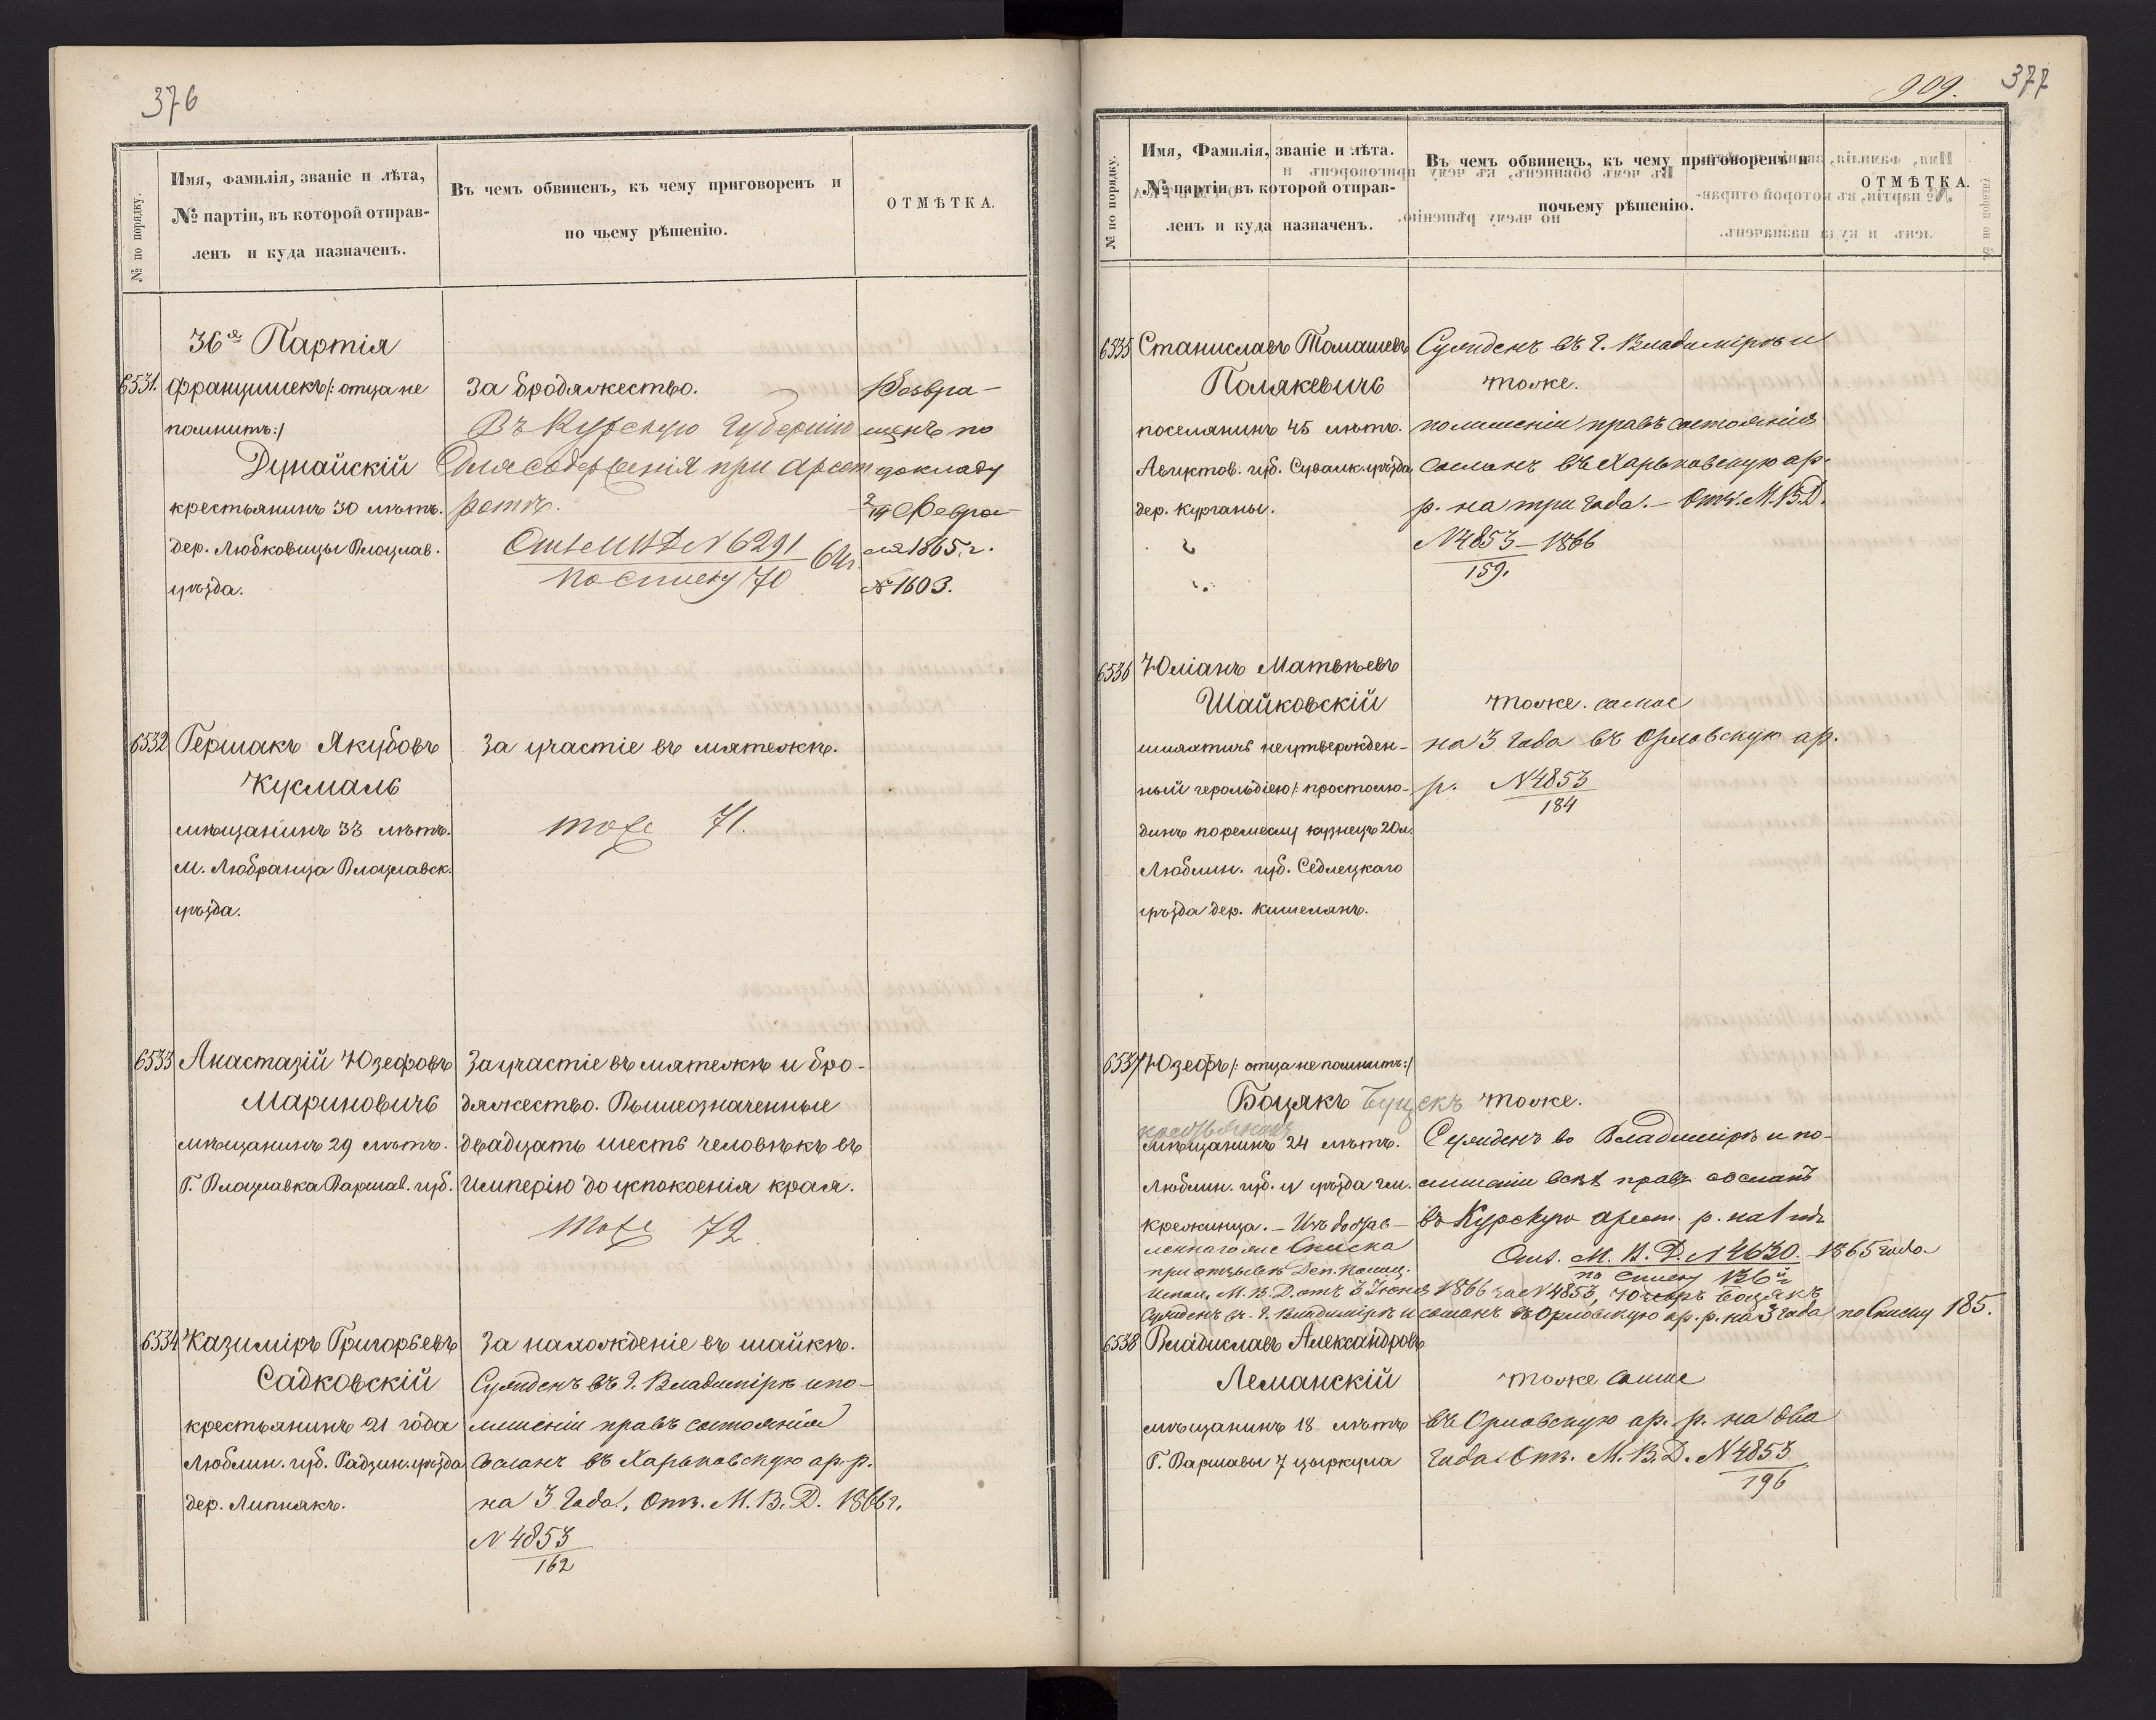 376
№ по порядку.
Имя, фамилія, званіе и лѣта,
№ партіи, въ которой отправ-
ленъ и куда назначенъ.
Въ чемъ обвиненъ, къ чему приговоренъ и
по чьему рѣшенію.
ОТМѢТКА.
36я Партія
6531. Францишекъ /: отца не
помнитъ :/
Дунайскій
крестьянинъ 30 лѣтъ.
дер. Любковицы Влоцлав.
уѣзда.
За бродяжество.
Въ Курскую Губернію
для содержанія при арест
ротѣ.
Отъ МВД N 6291
по списку 70
64г.
Возвра-
щенъ по
докладу
2/14 Февра-
ля 1865 г.
№ 1603.
6532 Гершакъ Якубовъ
Кусмаль
мѣщанинъ 33 лѣтъ.
М. Любранца Влоцлавск.
уѣзда.
За участіе въ мятежѣ.
тоже 71.
6533 Анастазій Юзефовъ
Мариновичъ
мѣщанинъ 29 лѣтъ.
Г. Влоцлавка Варшав. губ.
За участіе въ мятежѣ и бро-
дяжество. Вышеозначенные
двадцать шесть человѣкъ въ
Имперію до успокоенія края.
тоже 72
6534 Казиміръ Григорьевъ
Садковскій
крестьянинъ 21 года
Люблин. губ. Радзин. уѣзда
дер. Липнякъ.
За нахожденіе въ шайкѣ.
Сужденъ въ г. Владимірѣ и по-
лишеніи правъ состоянія
Сосланъ въ Харьковскую ар. р.
на 3 года, Отз. М. В. Д. 1866 г.
N 4853
162
909.
377
№ по порядку.
Имя, Фамилія, званіе и лѣта.
№ партіи въ которой отправ-
ленъ и куда назначенъ.
Въ чемъ обвиненъ, къ чему приговоренъ и
почьему рѣшенію.
ОТМѢТКА.
6535 Станиславъ Томашевъ
Полякевичъ
поселянинъ 45 лѣтъ.
Августов. губ. Сувалк. уѣзда
дер. Курганы.
Сужденъ въ г. Владимірѣ и
тоже.
по лишеніи правъ состоянія
сосланъ въ Харьковскую ар.
р. на три года. – Отз. М. В. Д.
N 4853 – 1866
159.
6536 Юліанъ Матвѣевъ
Шайковскій
шляхтичъ неутвержден-
ный герольдіею /: простолю-
динъ по ремеслу кузнецъ 20 л.
Люблин. губ. Седлецкаго
уѣзда дер. Кишелянъ.
тоже. самое
на 3 года въ Орловскую ар.
р. N 4853
184
6537 Юзефъ /: отца не помнитъ :/
Боцякъ Буцекъ
мѣщанинъ 24 лѣтъ.
Люблин. губ. и уѣзда гм.
Крежница. –
тоже.
Сужденъ во Владимірѣ и по-
лишеніи всѣхъ правъ сосланъ
въ Курскую арест. р. на 1 годъ
Отз. М. В. Д. N 4630. – 1865 года
по списку 136й
Списка
при отзывѣ Деп. Полиц.
Испол. М. В. Д. отъ 3 Іюня 1866 за N 4853, Юзефъ Боцякъ
Сужденъ въ г. Владимірѣ и сосланъ въ Орловскую ар. р. на 3 года по Списку 185.
6538 Владиславъ Александровъ
Леманскій
мѣщанинъ 18 лѣтъ
Г. Варшавы 7 цыркула
тоже самое
въ Орловскую ар. р. на два
года. Отз. М. В. Д. N 4853
196